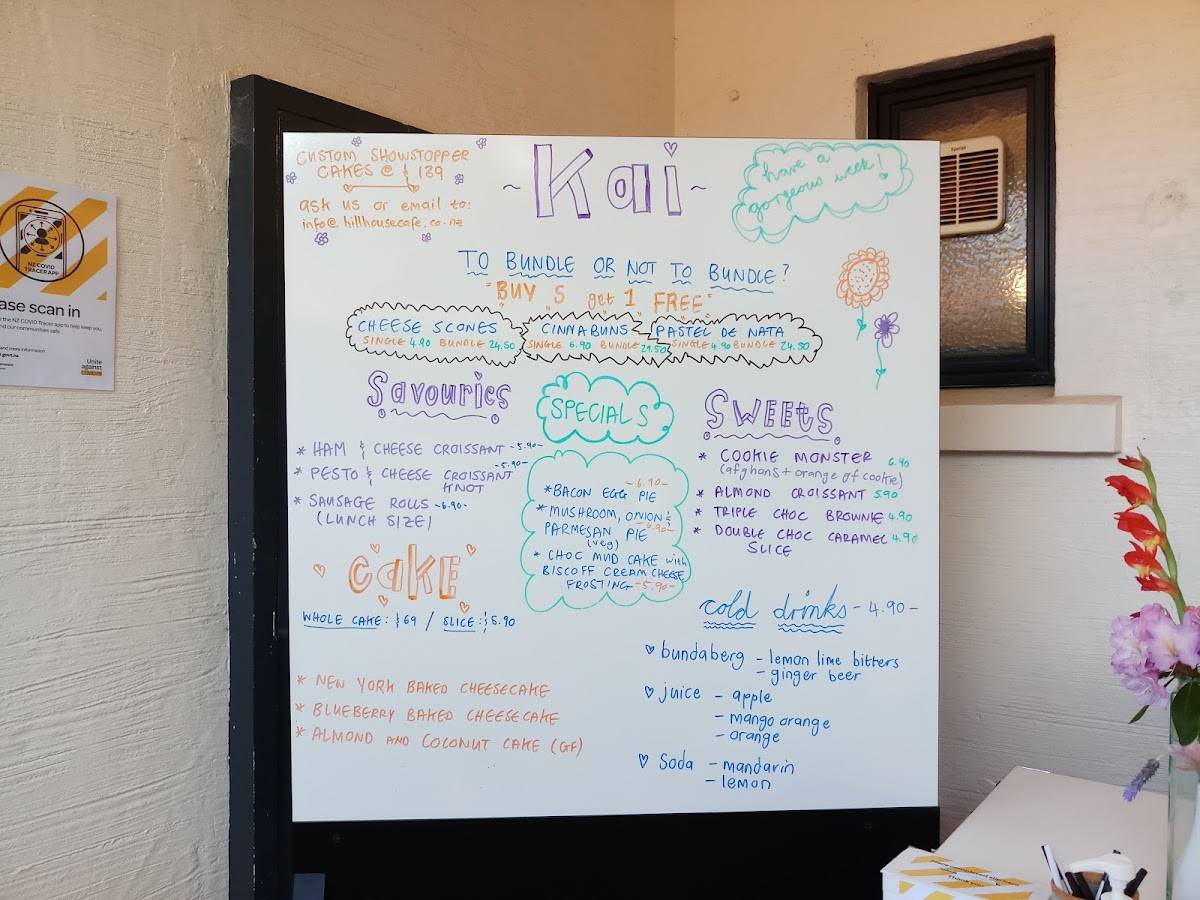 CUSTOM SHOWSTOPPER
CAKES @ $139
ask us or email to:
info@hillhousecafe.co.nz
~ Kai ~
have a
gorgeous week!
TO BUNDLE OR NOT TO BUNDLE?
"BUY 5 get 1 FREE"
CHEESE SCONES
SINGLE 4.90 BUNDLE 24.50
CINNABUNS
SINGLE 6.90 BUNDLE
PASTEL DE NATA
SINGLE 4.90 BUNDLE 24.50
Savouries
* HAM & CHEESE CROISSANT -5.90-
* PESTO & CHEESE CROISSANT -5.90-
KNOT
* SAUSAGE ROLLS -6.90-
(LUNCH SIZE)
SPECIALS
-6.90-
* BACON EGG PIE
* MUSHROOM, ONION &
PARMESAN PIE -6.90-
(veg)
* CHOC MUD CAKE with
BISCOFF CREAM CHEESE
FROSTING -5.90-
SWEETS
* COOKIE MONSTER 6.90
(afghans + orange of cookie)
* ALMOND CROISSANT 5.90
* TRIPLE CHOC BROWNIE 4.90
* DOUBLE CHOC CARAMEL 4.90
SLICE
CAKE
WHOLE CAKE: $69 / SLICE: $5.90
* NEW YORK BAKED CHEESECAKE
* BLUEBERRY BAKED CHEESECAKE
* ALMOND AND COCONUT CAKE (GF)
cold drinks - 4.90 -
♡ bundaberg - lemon lime bitters
- ginger beer
♡ juice - apple
- mango orange
- orange
♡ soda - mandarin
- lemon
NZ COVID
TRACER APP
ase scan in
the NZ COVID Tracer app to help keep you,
nd our communities safe
Unite
against